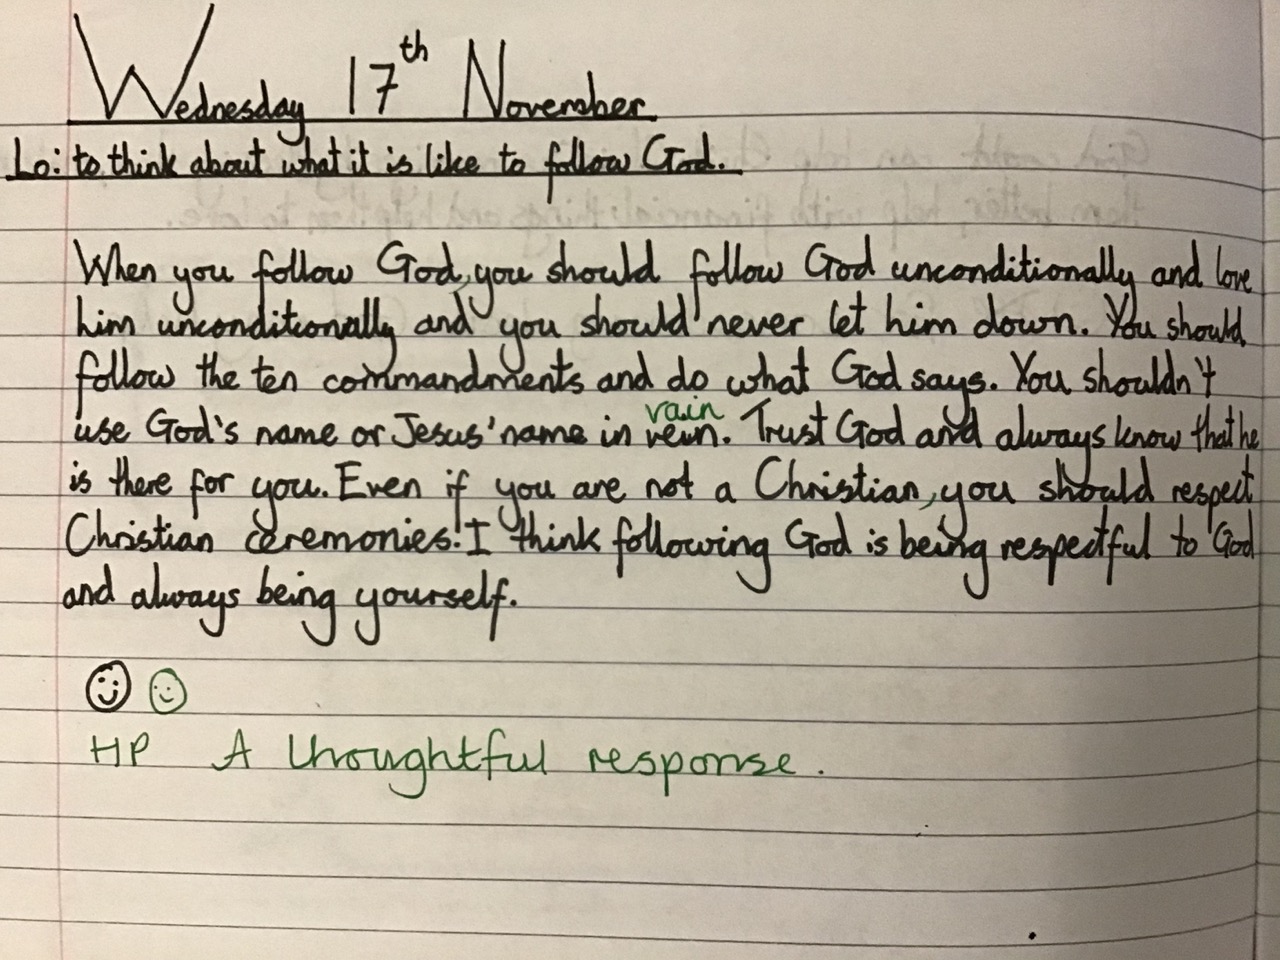 Wednesday 17th November
Lo: to think about what it is like to follow God.
When you follow God, you should follow God unconditionally and love
him unconditionally and you should never let him down. You should
follow the ten commandments and do what God says. You shouldn't
vain
use God's name or Jesus' name in vein. Trust God and always know that he
is there for you. Even if you are not a Christian, you should respect
Christian ceremonies. I think following God is being respectful to God
and always being yourself.
HP A thoughtful response.